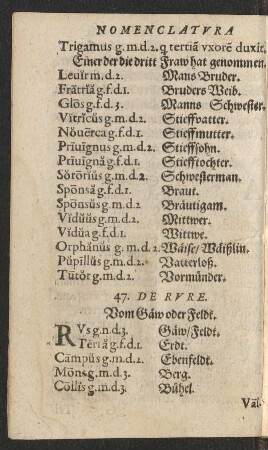 NOMENCLATVRA
Trigamus g.m.d.2. q̃ tertiã vxorẽ duxit.
Einer der die dritt Fraw hat genommen.
Leuĭr m.d.2. Mans Bruder.
Frātrĭă g.f.d.1. Bruders Weib.
Glōs g.f.d.3. Manns Schwester.
Vītrĭcŭs g.m.d.2. Stieffvatter.
Nŏuērca g.f.d.1. Stieffmutter.
Prīuīgnus g.m.d.2. Stieffsohn.
Prīuīgnă g.f.d.1. Stieffdochter.
Sŏrōrĭŭs g.m.d.2. Schwesterman.
Spōnsă g.f.d.1. Braut.
Spōnsŭs g.m.d.2. Bräutigam.
Vĭdŭŭs g.m.d.2. Wittwer.
Vĭdŭa g.f.d.1. Wittwe.
Orphănŭs g.m.d.2. Wäise/Wäißlin.
Pūpīllŭs g.m.d.2. Vatterloß.
Tūtŏr g.m.d.2. Vormünder.
47. DE RVRE.
Vom Gäw oder Feldt.
RVs g.n.d.3. Gäw/Feldt.
Tērră g.f.d.1. Erdt.
Cāmpŭs g.m.d.2. Ebenfeldt.
Mōns g.m.d.3. Berg.
Cōllĭs g.m.d.3. Bühel.
Val-